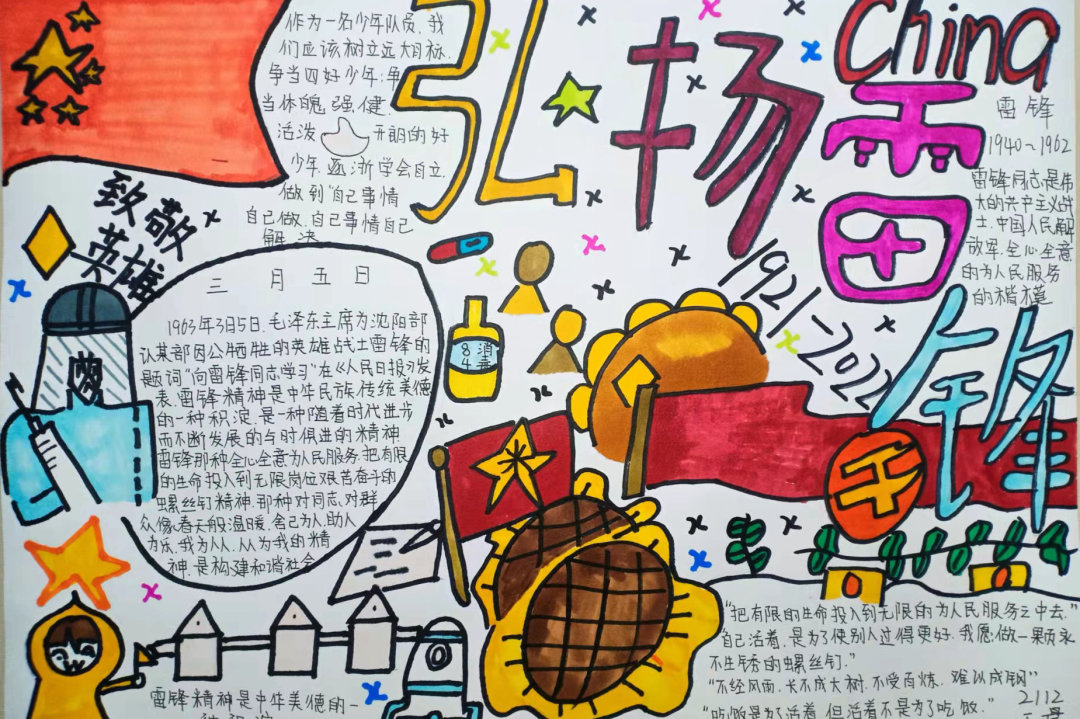 作为一名少年队员,我
们应该树立远大目标.
争当四好少年;争
当体魄强健.
活泼 开朗的好
少年.逐渐学会自立.
做到“自己事情
自己做.自己事情自己
解决
弘扬雷锋
China
雷锋
1940~1962
雷锋同志是伟
大的共产主义战
士.中国人民解
放军.全心全意
的为人民服务
的楷模
1921-2022
致敬
英雄
三月五日
1963年3月5日.毛泽东主席为沈阳部
队某部因公牺牲的英雄战士雷锋的
题词“向雷锋同志学习”在《人民日报》发
表.雷锋精神是中华民族传统美德
的一种积淀.是一种随着时代进步
而不断发展的与时俱进的精神
雷锋那种全心全意为人民服务.把有限
的生命投入到无限岗位艰苦奋斗的
螺丝钉精神.那种对同志.对群
众像春天般温暖.舍己为人.助人
为乐.我为人人.人人为我的精
神.是构建和谐社会
84
消毒
“把有限的生命投入到无限的为人民服务之中去.”
自己活着.是为了使别人过得更好.我愿做一颗永
不生锈的螺丝钉.”
“不经风雨.长不成大树.不受百炼.难以成钢”
“吃饭是为了活着.但活着不是为了吃饭.”
2112
雷锋精神是中华美德的一